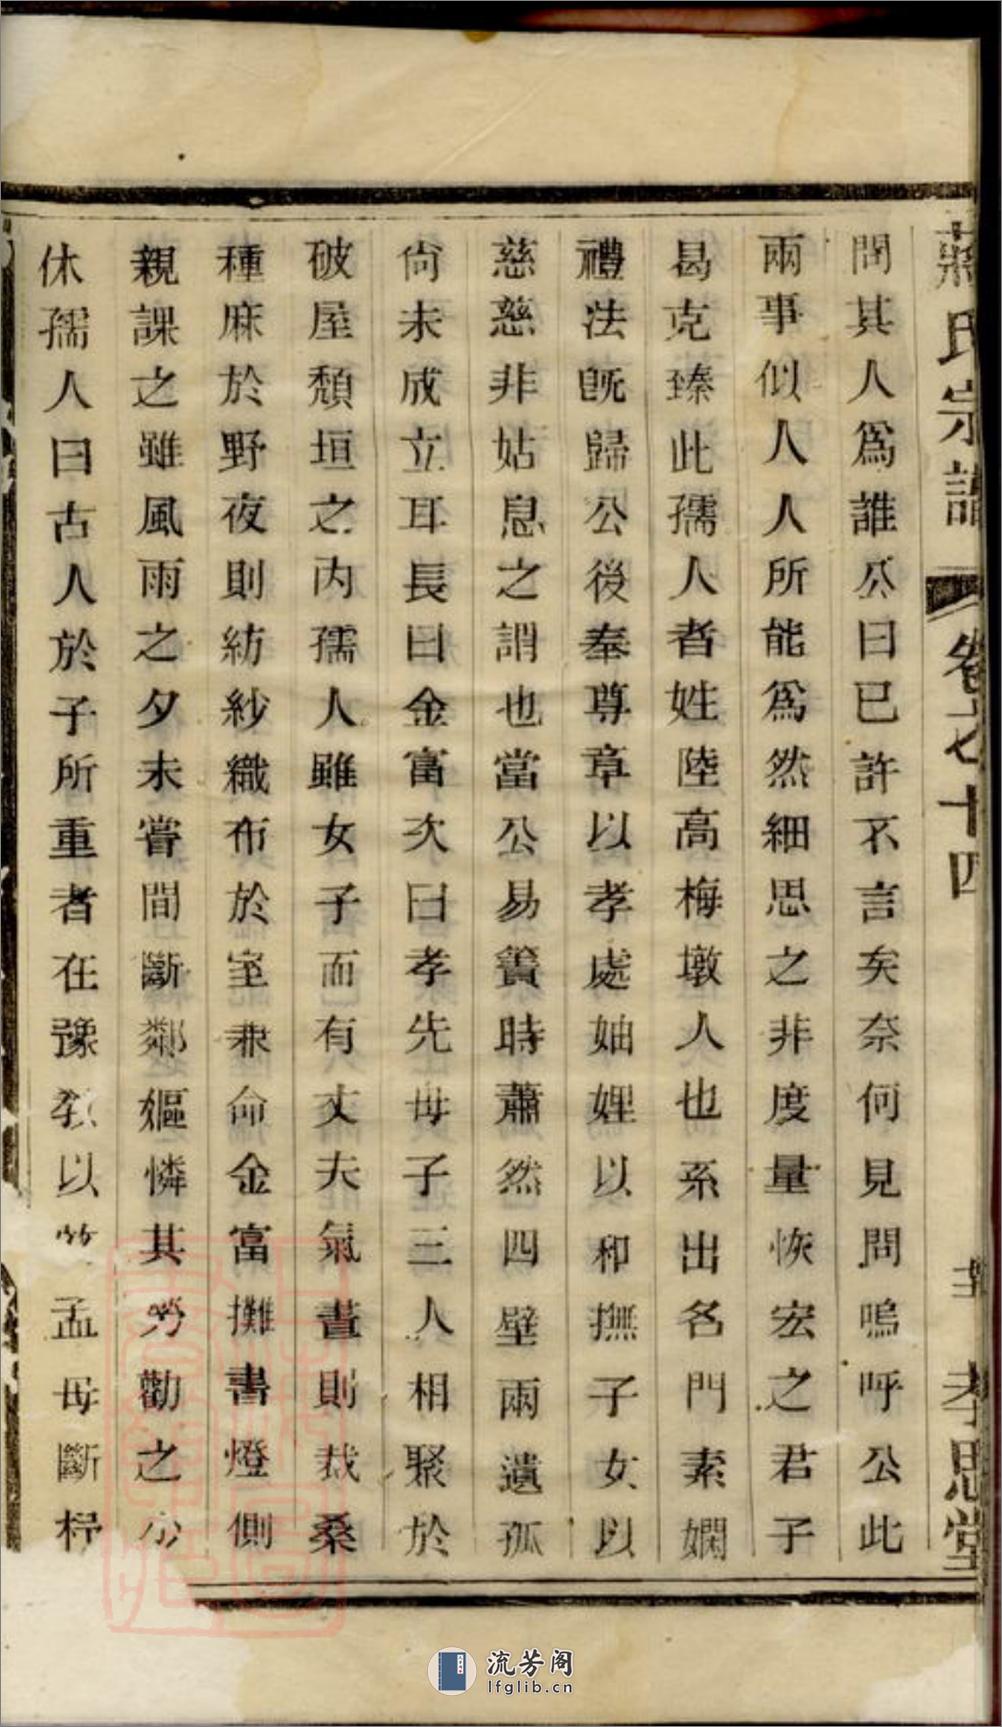 蔣氏宗譜 卷之十四 孝思堂
問其人爲誰公曰已許不言矣奈何見問嗚呼公此
兩事似人人所能爲然細思之非度量恢宏之君子
曷克臻此孺人者姓陸高梅墩人也系出名門素嫻
禮法旣歸公後奉尊章以孝處妯娌以和撫子女以
慈慈非姑息之謂也當公易簀時蕭然四壁兩遺孤
尙未成立耳長曰金富次曰孝先母子三人相聚於
破屋頹垣之內孺人雖女子而有丈夫氣晝則栽桑
種麻於野夜則紡紗織布於室兼命金富攤書燈側
親課之雖風雨之夕未嘗間斷鄰嫗憐其勞勸之少
休孺人曰古人於子所重者在豫教以孟母斷杼
流芳阁
lfglib.cn